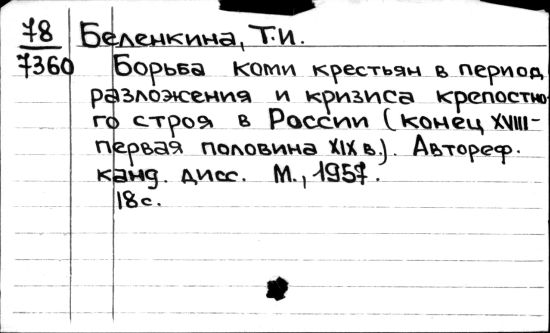 78 Беленкина, Т.И.
7360 Борьба коми крестьян в период
разложения и кризиса крепостно-
го строя в России (конец XVIII-
первая половина XIX в.). Автореф.
канд. дисс. М., 1957.
18с.